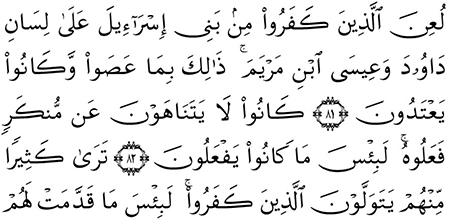 لُعِنَ ٱلَّذِينَ كَفَرُوا۟ مِنۢ بَنِىٓ إِسْرَٰٓءِيلَ عَلَىٰ لِسَانِ
دَاوُۥدَ وَعِيسَى ٱبْنِ مَرْيَمَ ۚ ذَٰلِكَ بِمَا عَصَوا۟ وَّكَانُوا۟
يَعْتَدُونَ ﴿٨١﴾ كَانُوا۟ لَا يَتَنَاهَوْنَ عَن مُّنكَرٍ
فَعَلُوهُ ۚ لَبِئْسَ مَا كَانُوا۟ يَفْعَلُونَ ﴿٨٢﴾ تَرَىٰ كَثِيرًا
مِّنْهُمْ يَتَوَلَّوْنَ ٱلَّذِينَ كَفَرُوا۟ ۚ لَبِئْسَ مَا قَدَّمَتْ لَهُمْ